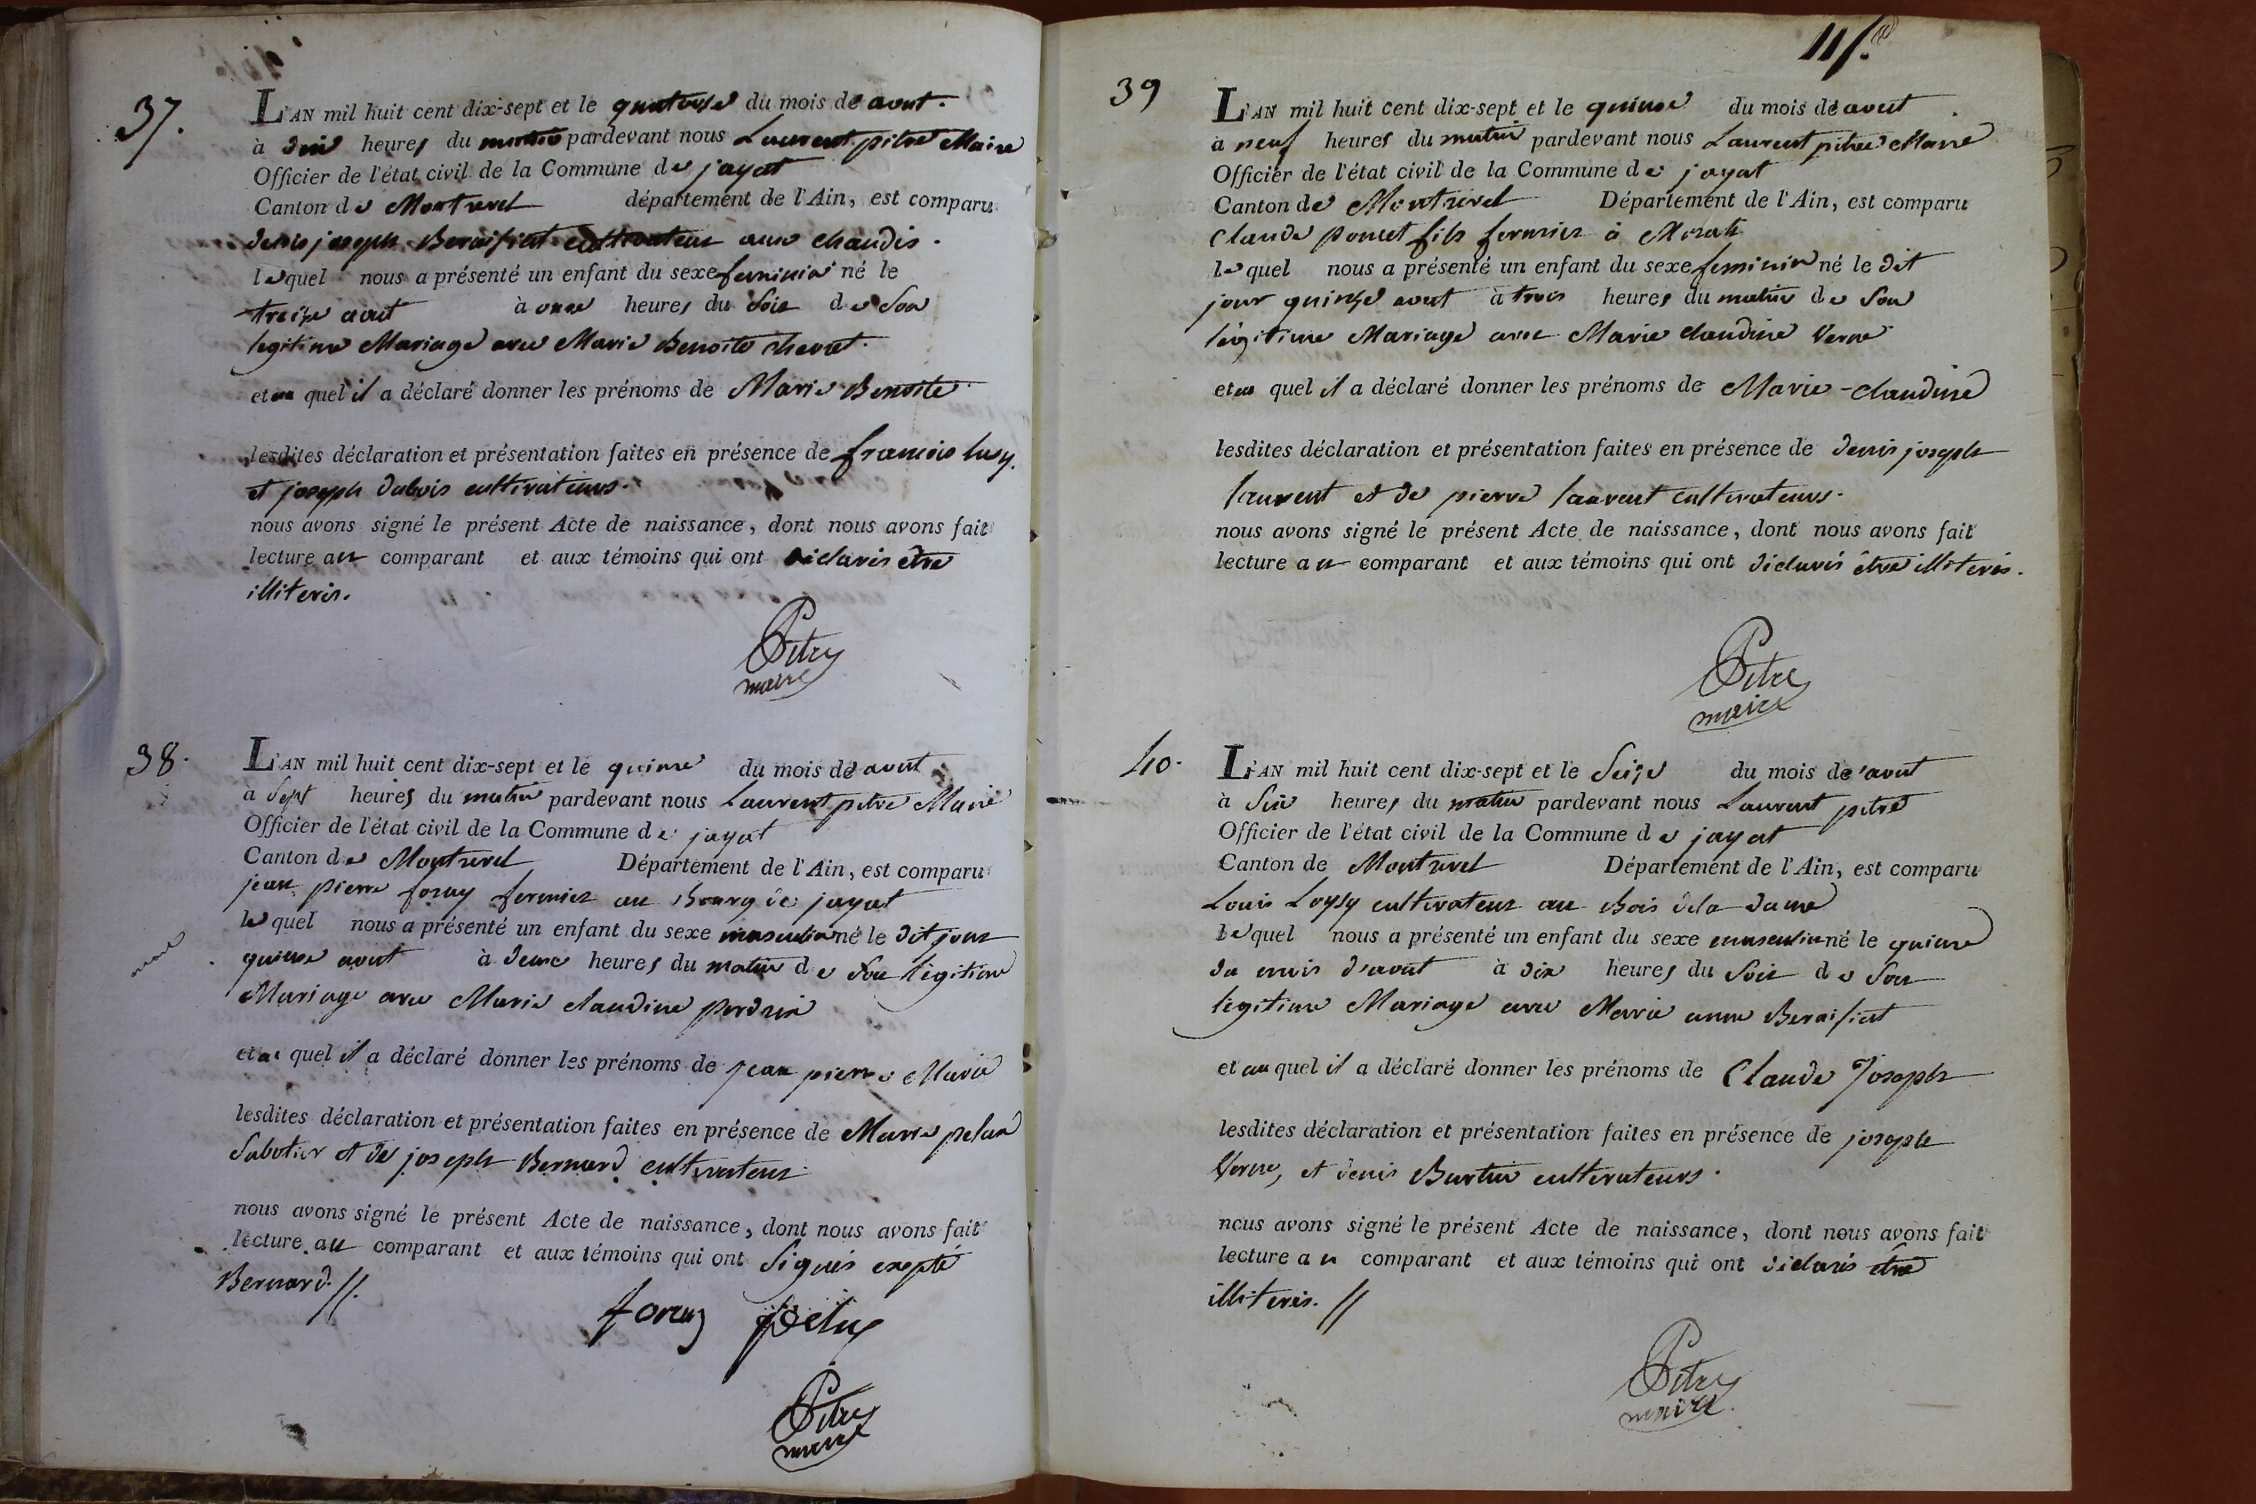 37.
L'AN mil huit cent dix-sept et le quatorze du mois de aout.
à dix heures du matin pardevant nous Laurent pitre Maire
Officier de l'état civil de la Commune de jayat
Canton de Montrevel département de l'Ain, est comparu
denis joseph Beraifiat cultivateur aux chaudis.
lequel nous a présenté un enfant du sexe feminin né le
treize aout à onze heures du Soir de Son
legitime Mariage avec Marie Benoite chevret.
et au quel il a déclaré donner les prénoms de Marie Benoite
lesdites déclaration et présentation faites en présence de francois lusy.
et joseph dubois cultivateurs.
nous avons signé le présent Acte de naissance, dont nous avons fait
lecture au comparant et aux témoins qui ont déclarés être
illiterés.
Pitre
maire
38.
L'AN mil huit cent dix-sept et le quinze du mois de aout
à Sept heures du matin pardevant nous Laurent pitre Maire
Officier de l'état civil de la Commune de jayat
Canton de Montrevel Département de l'Ain, est comparu
jean pierre foray fermier au Bourg de jayat
lequel nous a présenté un enfant du sexe masculin né le dit jour
quinze aout à deux heures du matin de Son légitime
mort
Mariage avec Marie claudine perdrix
et au quel il a déclaré donner les prénoms de jean pierre Marie
lesdites déclaration et présentation faites en présence de Marie pelux
Sabotier et de joseph Bernard cultivateur.
nous avons signé le présent Acte de naissance, dont nous avons fait
lecture au comparant et aux témoins qui ont Signés exepté
Bernard. //.
foray pelux
Pitre
maire
39
L'AN mil huit cent dix-sept et le quinze du mois de aout
à neuf heures du matin pardevant nous Laurent pitre Maire
Officier de l'état civil de la Commune de jayat
Canton de Montrevel Département de l'Ain, est comparu
Claude poncet fils fermier à
lequel nous a présenté un enfant du sexe feminin né le dit
jour quinze aout à trois heures du matin de Son
légitime Mariage avec Marie claudine Verne
et au quel il a déclaré donner les prénoms de Marie-claudine
lesdites déclaration et présentation faites en présence de denis joseph
laurent et de pierre laurent cultivateurs.
nous avons signé le présent Acte de naissance, dont nous avons fait
lecture au comparant et aux témoins qui ont déclarés être illiterés.
Pitre
maire
40.
L'AN mil huit cent dix-sept et le Seize du mois de aout
à Six heures du matin pardevant nous Laurent pitre
Officier de l'état civil de la Commune de jayat
Canton de Montrevel Département de l'Ain, est comparu
Louis Loysy cultivateur au Bois de la dame
lequel nous a présenté un enfant du sexe masculin né le quinze
du mois d'aout à dix heures du Soir de Son
légitime Mariage avec Marie anne Beraifiat
et au quel il a déclaré donner les prénoms de Claude Joseph
lesdites déclaration et présentation faites en présence de joseph
Verne, et denis Burtin cultivateurs.
nous avons signé le présent Acte de naissance, dont nous avons fait
lecture au comparant et aux témoins qui ont déclarés être
illiterés. //
Pitre
maire